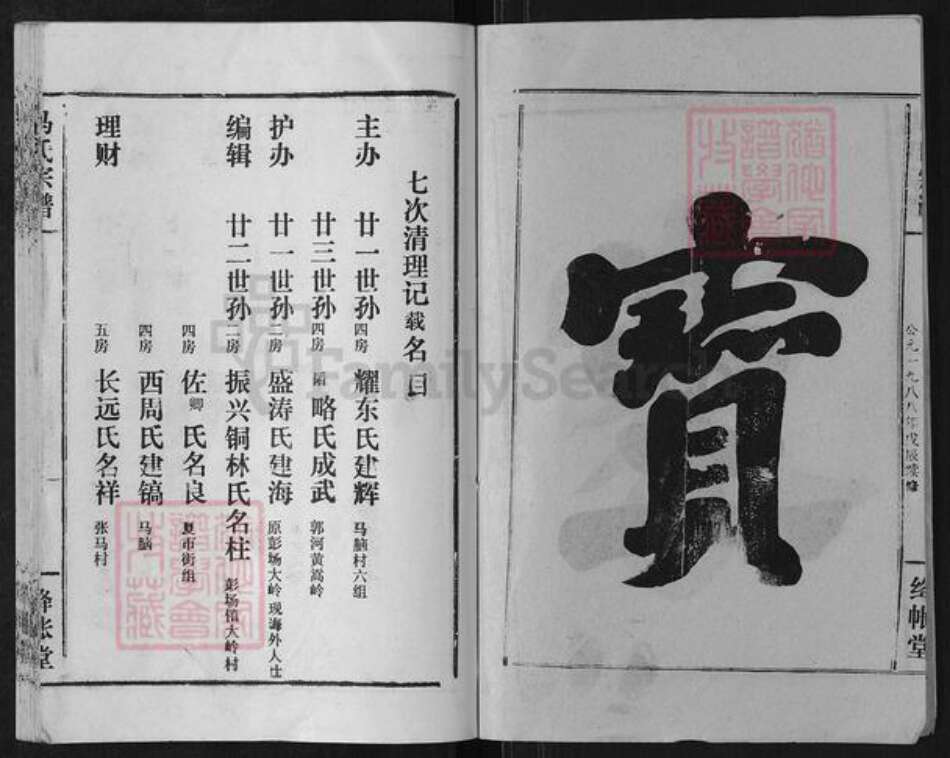 寶
公元一九八八年戊辰续修
绛帐堂
七次清理记载名目
主办 廿一世孙 四房 耀东氏建辉 马脑村六组
廿三世孙 四房 略氏成武 郭河黄嵩岭
护办 廿一世孙 二房 盛涛氏建海 原彭场大岭现海外人士
编辑 廿二世孙 二房 振兴铜林氏名柱 彭场镇大岭村
四房 佐卿氏名良 夏市街组
四房 西周氏建镐 马脑
理财 五房 长远氏名祥 张马村
冯氏宗谱
绛帐堂
FamilySearch